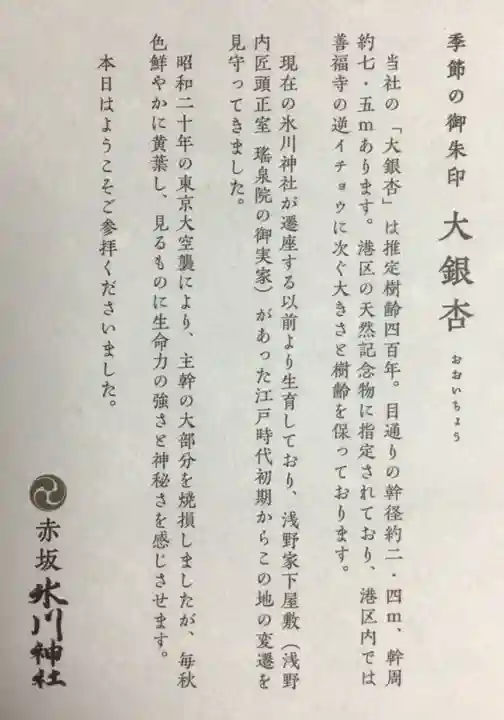 季節の御朱印 大銀杏 おおいちょう
当社の「大銀杏」は推定樹齢四百年。目通りの幹径約二・四m、幹周
約七・五mあります。港区の天然記念物に指定されており、港区内では
善福寺の逆イチョウに次ぐ大きさと樹齢を保っております。
現在の氷川神社が遷座する以前より生育しており、浅野家下屋敷（浅野
内匠頭正室 瑤泉院の御実家）があった江戸時代初期からこの地の変遷を
見守ってきました。
昭和二十年の東京大空襲により、主幹の大部分を焼損しましたが、毎秋
色鮮やかに黄葉し、見るものに生命力の強さと神秘さを感じさせます。
本日はようこそご参拝くださいました。
赤坂 氷川神社